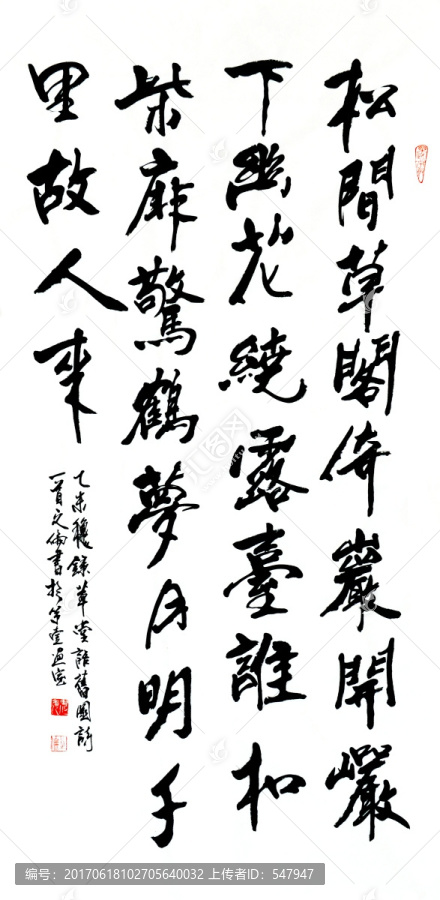 松間草閣倚巖開巖
下幽花繞露臺誰扣
柴扉驚鶴夢月明千
里故人來
乙未穐錄草堂話舊圖詩
一首之倫書於笔壹画室
编号：20170618102705640032 上传者ID：547947